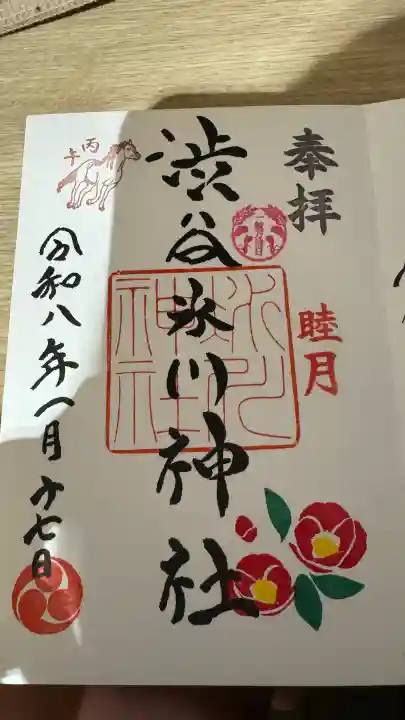 奉拝
睦月
渋谷氷川神社
氷川
神社
丙
午
令和八年一月十七日